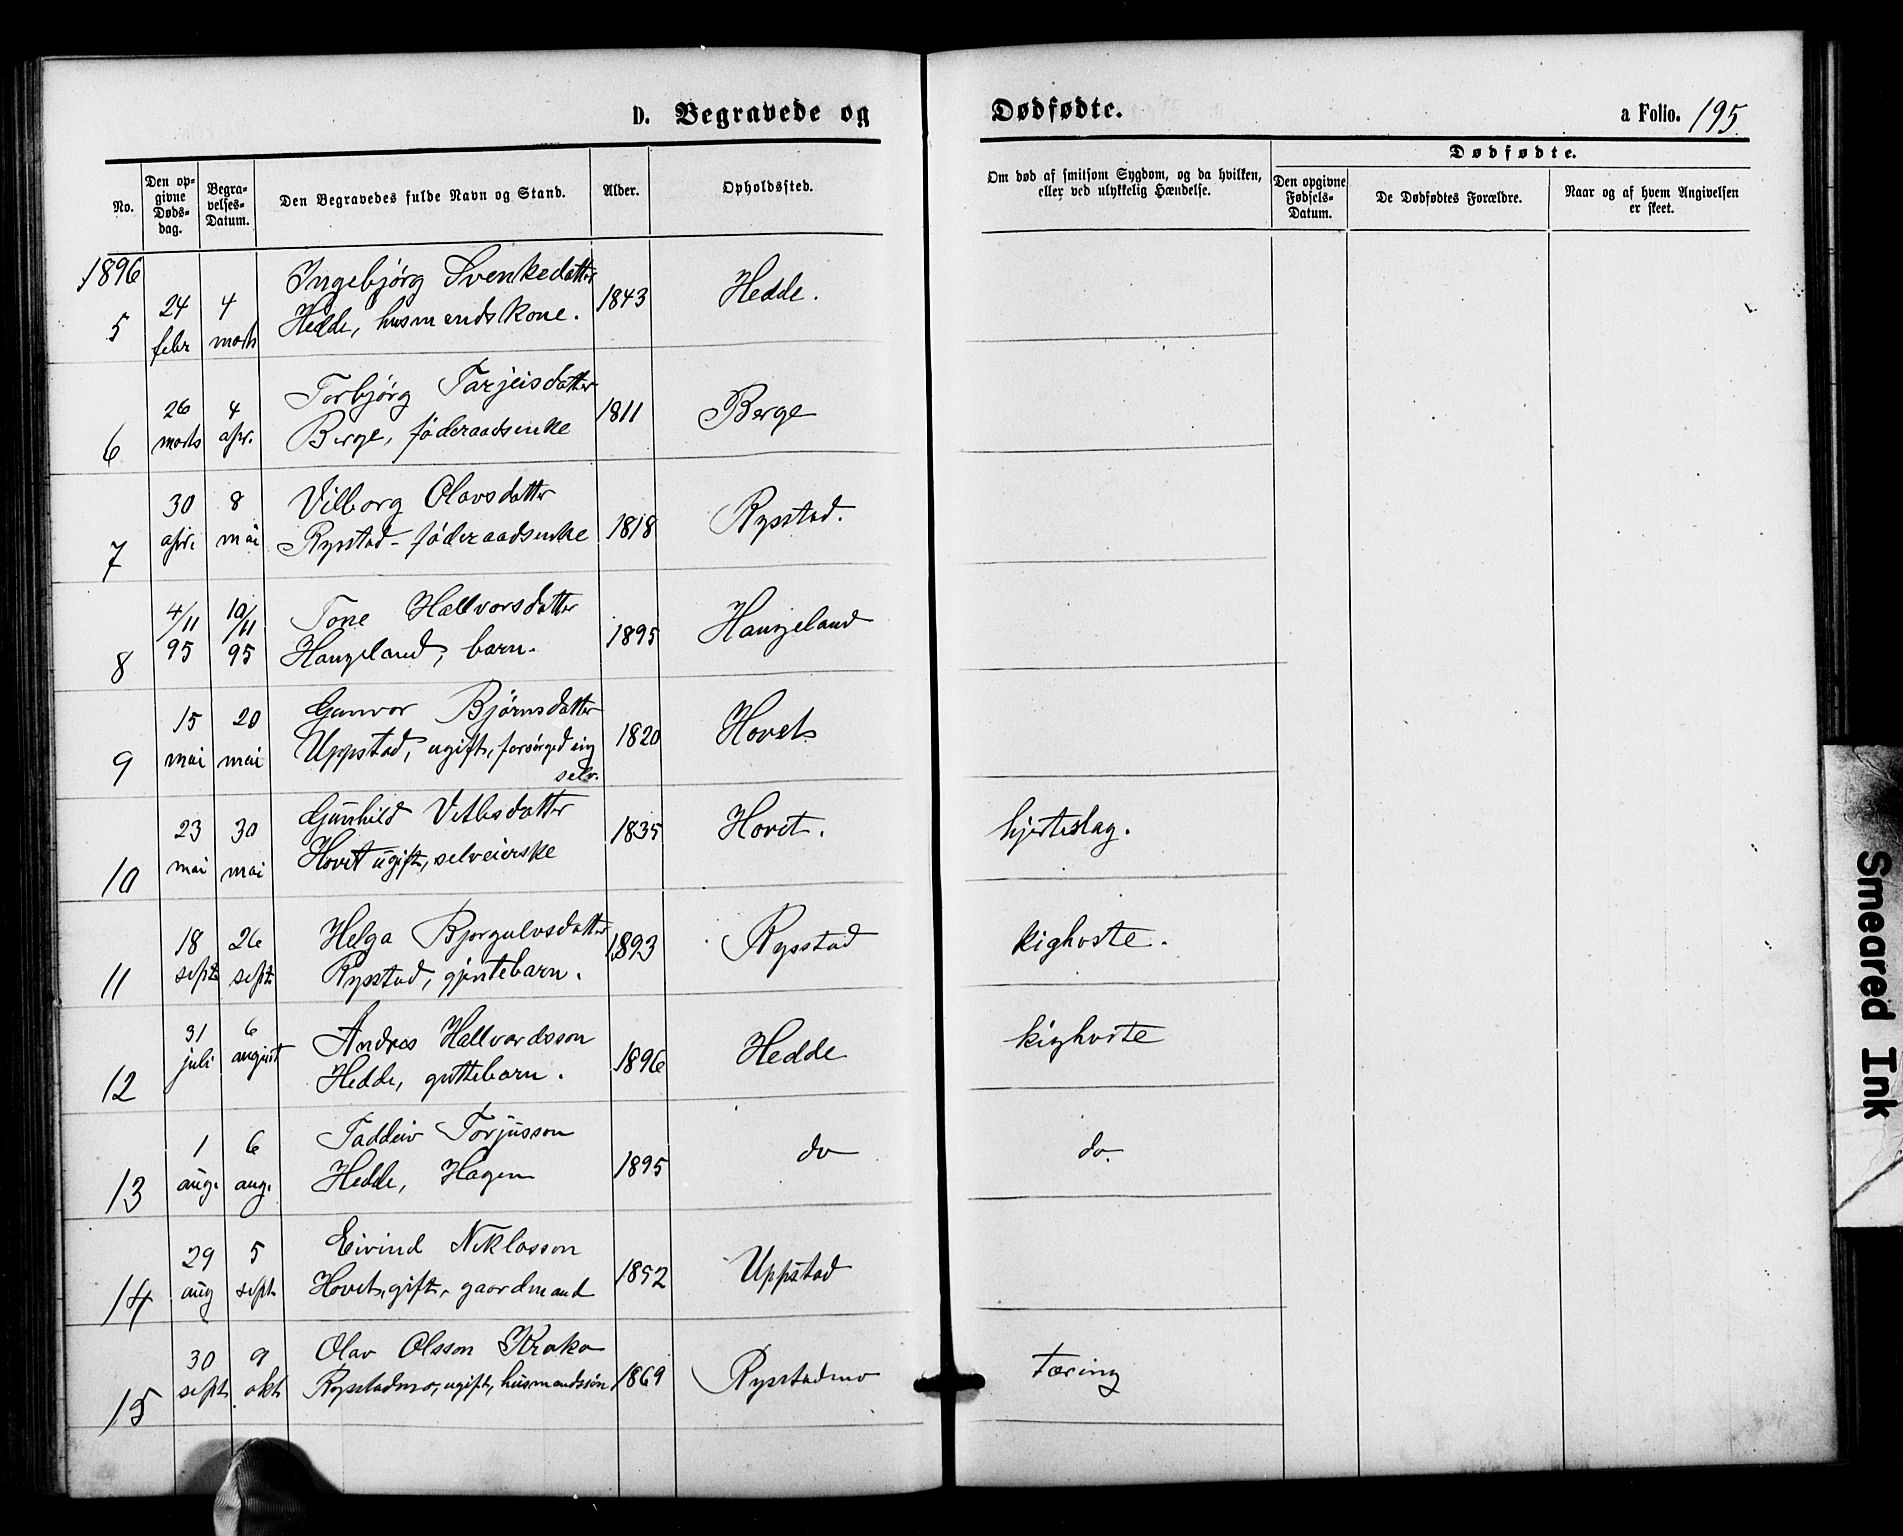 D. Begravede og Dødfødte. a Folio. 195
No.
Den op-
givne
Døds-
dag.
Begra-
velses-
Datum.
Den Begravedes fulde Navn og Stand.
Alder.
Opholdssted.
Om død af smitsom Sygdom, og da hvilken,
eller ved ulykkelig Hændelse.
Dødfødte.
Den opgivne
Fødsels-
Datum.
De Dødfødtes Forældre.
Naar og af hvem Angivelsen
er skeet.
1896
5 24 febr 4 marts Ingebjørg Svenkedatter
Hedde, husmandskone. 1843 Hedde.
6 26 marts 4 apr. Torbjørg Tarjeisdatter
Berge, føderaadsenke 1811 Berge
7 30 apr. 8 mai Vilborg Olavsdatter
Rysstad - føderaadsenke 1818 Rysstad.
8 4/11 95 10/11 95 Tone Hallvorsdatter
Haugeland, barn. 1895 Haugeland
9 15 mai 20 mai Gunvor Bjørnsdatter
Uppstad, ugift, forsørged sig
selv. 1820 Hovet
10 23 mai 30 mai Gunhild Vetlesdatter
Hovet ugift, selveierske 1835 Hovet. hjerteslag.
11 18 sept. 26 sept. Helga Bjorgulvsdatter
Rysstad, gjentebarn. 1893 Rysstad kighoste.
12 31 juli 6 august Andres Hallvardsson
Hedde, guttebarn. 1896 Hedde kighoste
13 1 aug. 6 aug. Taddeiv Torjusson
Hedde, Hagen 1895 do do.
14 29 aug 5 sept. Eivind Niklosson
Hovet, gift, gaardmand 1852 Uppstad
15 30 sept. 9 okt. Olav Olsson Kroka
Rysstadmo, ugift, husmandssøn 1869 Rysstadmo Tæring
Smeared Ink